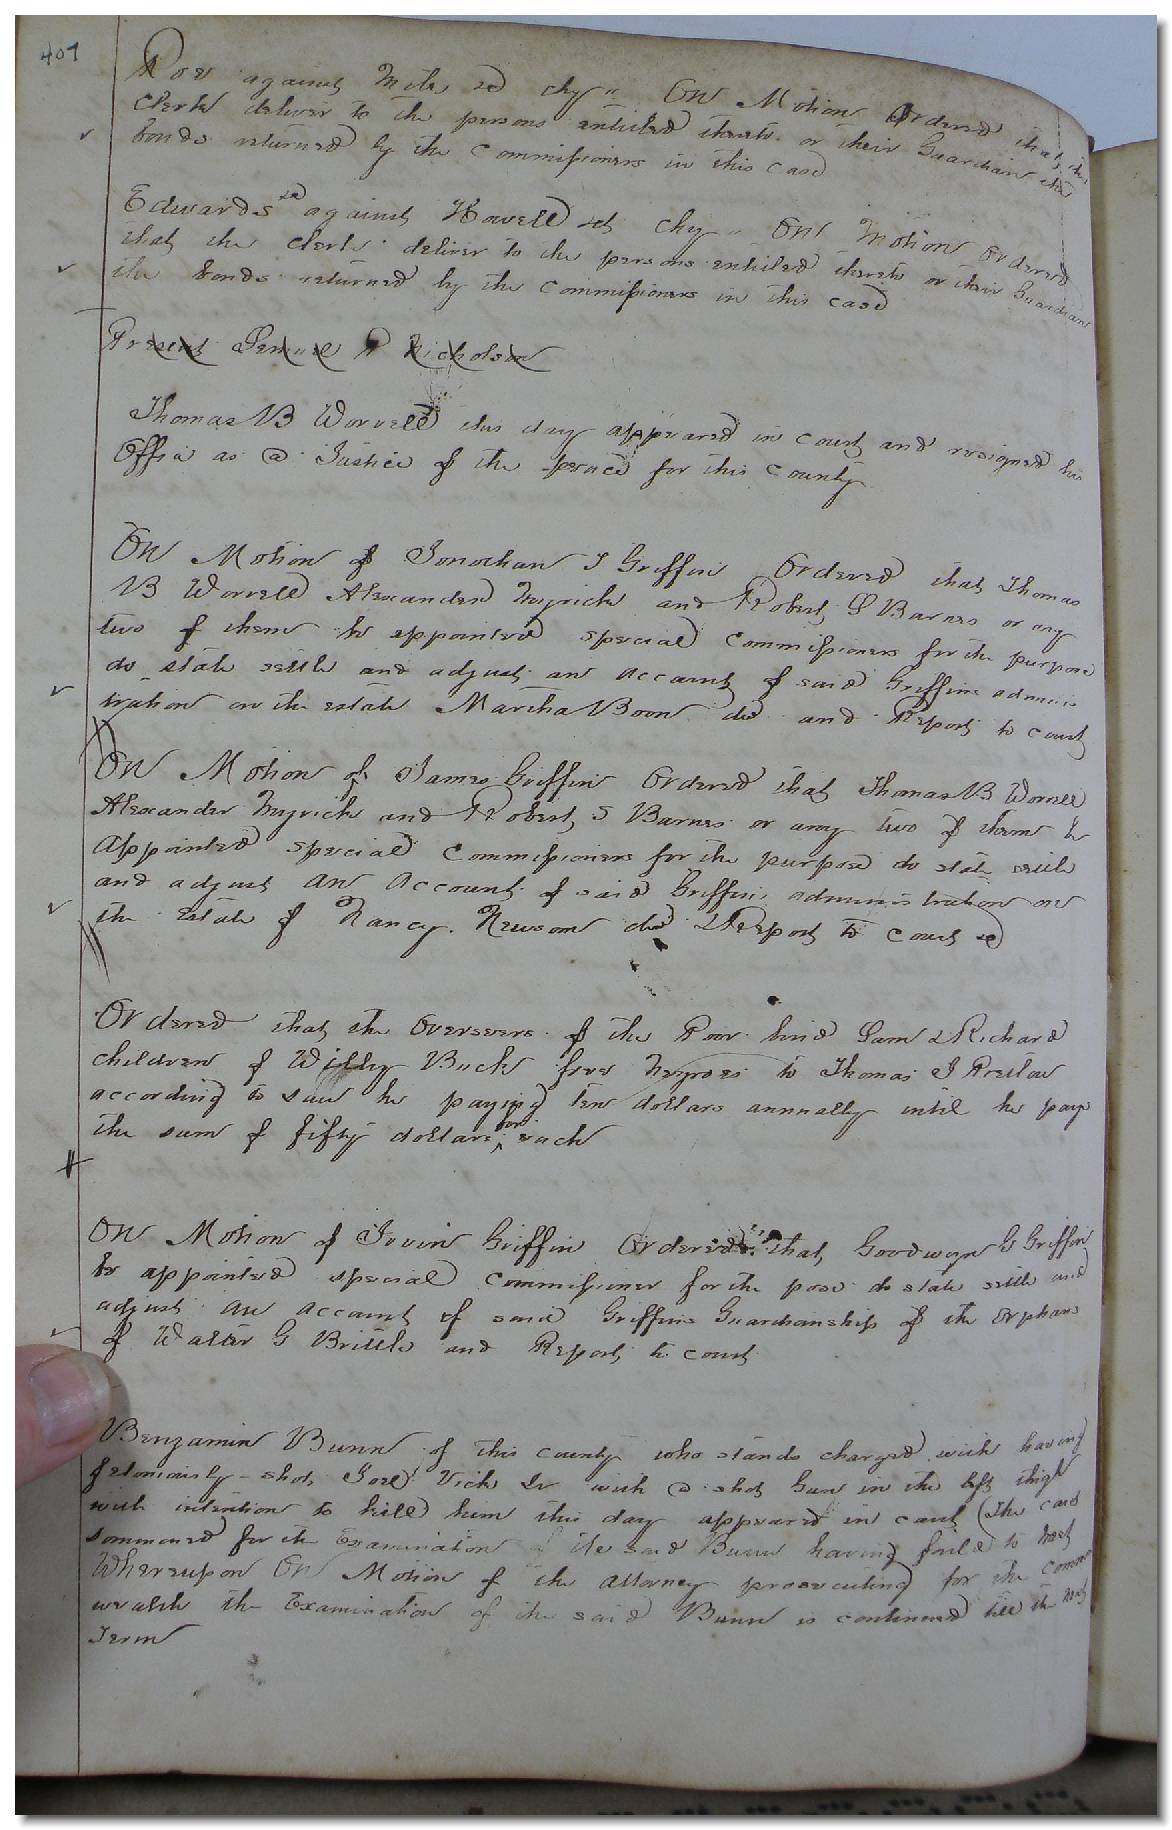 407
against chy " On Motion Ordered that the
Clerk deliver to the persons entitled thereto or their Guardian the
bonds returned by the Commissioners in this case
Edwards &c against Howell &c chy " On Motion Ordered
that the Clerk deliver to the persons entitled thereto or their Guardians
the bonds returned by the Commissioners in this case
Present Nicholson
Thomas B Worrell this day appeared in Court and resigned his
Office as a Justice of the peace for this County
On Motion of Jonathan J Griffin Ordered that Thomas
B Worrell Alexander Myrick and Robert S Barnes or any
two of them be appointed special Commissioners for the purpose
do state settle and adjust an account of said Griffins adminis
tration on the estate Martha Boon dec and Report to court
On Motion of James Griffin Ordered that Thomas B Worrell
Alexander Myrick and Robert S Barnes or any two of them be
appointed special Commissioners for the purpose do state settle
and adjust an account of said Griffins administration on
the Estate of Nancy Newsom dec & Report to Court &c
Ordered that the Overseers of the Poor bind Sam & Richard
children of Buck free Negroes to Thomas J Pretlow
according to Law he paying ten dollars annually until he pays
the sum of fifty dollars for each
On Motion of Griffin Ordered that Goodwyn G Griffin
be appointed special commissioner for the pose do state settle and
adjust an account of said Griffins Guardianship of the orphans
of Walter G Brittle and Report to court
Benjamin Bunn of this county who stands charged with having
feloniously shot Joel Vick Sr with a shot Gun in the left thigh
with intention to kill him this day appeared in court (The court
sommoned for the Examination of the said Bunn having faild to meet
Whereupon On Motion of the Attorney prosecuting for the common
wealth the Examination of the said Bunn is continued till the next
Term